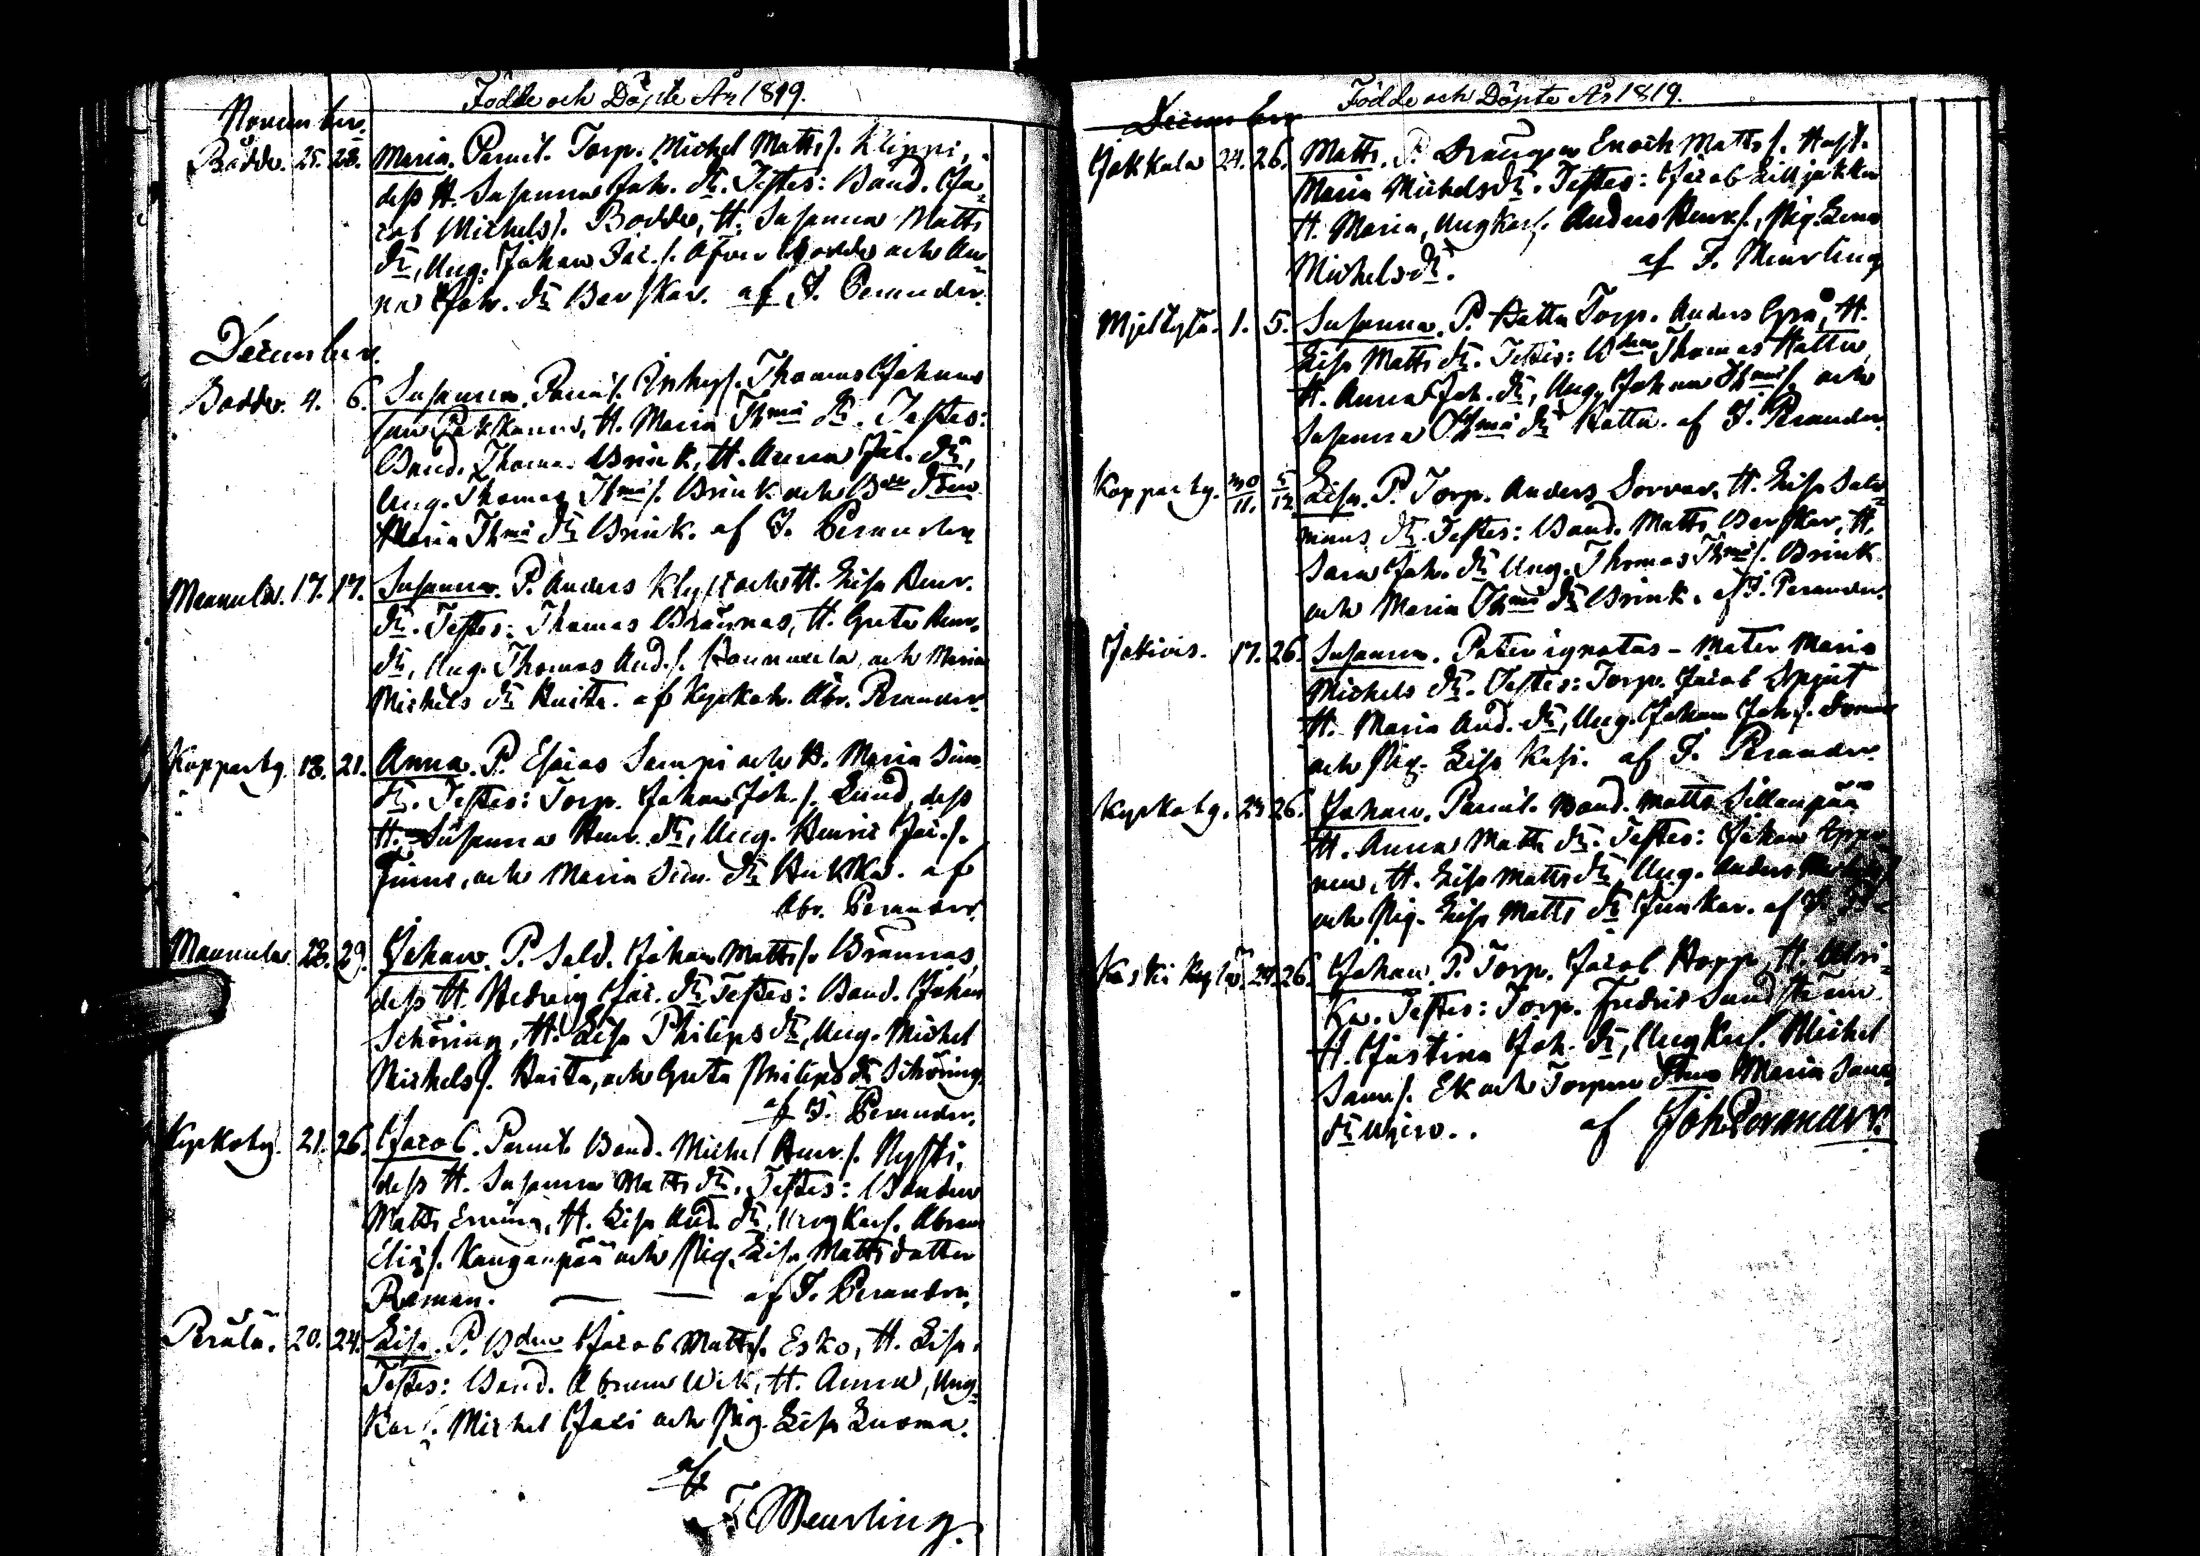 Födde och Döpte År 1819.
November.
Bådde. 25. 28. Maria. Parent. Torp. Michel Matts s. Klippi,
dess H. Susanna Joh. dr. Testes: Bond. Ja-
cob Michels s. Bodde, H. Susanna Matts
dr, Ung. Johan Jac. s. Öfver Bodde och An-
na Joh. dr Berskar. af J. Perander.
December.
Bodde. 4. 6. Susanna. Parent. Inhys. Thomas Johans
son Pakkanen, H. Maria Thmæ dr. Testes:
Bond. Thomas Brink, H. Anna Jac. dr,
Ung. Thomas Thmæ s. Brink och Bde
Maria Thmæ dr Brink. af J. Perander
Mannula. 17. 17. Susanna. P. Anders Klyft och H. Lisa Henr.
dr. Testes: Thomas Brännas, H. Greta Henr.
dr, Ung. Thomas And. s. Mannula, och Maria
Michels dr Knita. af Kyrkoh. Abr. Perander.
Kopparby. 18. 21. Anna. P. Esaias Sampi och H. Maria Sim.
dr. Testes: Torp. Johan Joh. s. Lund, dess
H. Susanna Henr. dr, Ung. Henric Jac. s.
Finne, och Maria Sim. dr Hukka. af
Abr. Perander.
Mannula. 28. 29. Johan. P. Sold. Johan Matts s. Brännas,
dess H. Hedvig Jac. dr Testes: Bond. Johan
Schöring, H. Lisa Philips dr, Ung. Michel
Michels s. Knita, och Greta Philips dr Schöring.
af J. Perander.
Kyrkoby. 21. 26. Jacob. Parent. Bond. Michel Henr. s. Nysti,
dess H. Susanna Matts dr. Testes: Bonden
Matts H. Lisa And. dr, Ungkarl. Abram
Elias s. Kanganpää och Pig. Lisa Mattsdotter
Raman. af J. Perander.
Perälä. 20. 24. Lisa. P. Bden Jacob Matts s. Esko, H. Lisa.
Testes: Bond. Abram Wik, H. Anna, Ung-
Karl. Michel Jaси och Pig. Lisa Luoma.
af
F. Meurling.
Födde och Döpte År 1819.
December
Jakkula 24. 26. Matts. P. Drängen Enoch Matts s. Hust.
Maria Michelsdr. Testes: Jacob Lilljakku
H. Maria, Ungkarl. Anders Henr s., Pig. Lena
Michelsdr. af F. Meurling
Mjeltylä. 1. 5. Susanna. P. Hatta Torp. Anders Grå, H.
Lisa Matts dr. Testes: Bden Thomas Hatta,
H. Anna Joh. dr, Ung. Johan Thmæ s. och
Susanna Thmæ dr Hatta. af J. Perander.
Kopparby. 30/11. 5/12 Lisa. P. Torp. Anders Sorvar, H. Lisa Salo-
mons dr. Testes: Bond. Matts Berskar, H.
Sara Joh. dr Ung. Thomas Thmæ s. Brink
och Maria Thmæ dr Brink. af J. Perander.
Jakivis. 17. 26. Susanna. Pater ignotus - Mater Maria
Michels dr. Testes: Torp. Jacob Spjut
H. Maria And. dr, Ung. Johan Joh. s.
och Pig. Lisa Kasi. af J. Perander.
Kyrkoby. 24 26. Johan. Parent. Bond. Matts Sillanpää
H. Anna Matts dr. Testes: Johan
H. Lisa Matts dr, Ung. Anders
och Pig. Lisa Matts dr Junkar. af
Kaski Kylä. 24. 26. Johan. P. Torp. Jacob Hopp, H. Ulri-
ka. Testes: Torp. Fredric Sundström
H. Justina Joh. dr, Ungkarl. Michel
Sam s. Ek och Torparen Maria
dr af Joh. Perander.